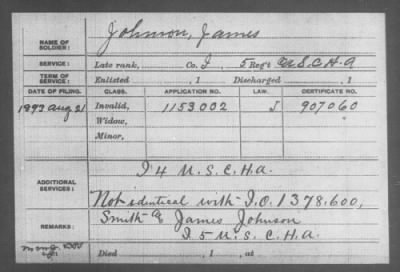 NAME OF SOLDIER: Johnson, James
SERVICE: Late rank, Co. I, 5 Reg't U.S.C.H.A
TERM OF SERVICE: Enlisted , 1 Discharged , 1
DATE OF FILING. CLASS. APPLICATION NO. LAW. CERTIFICATE NO.
1893 Aug 21 Invalid, 1153002 J 907060
Widow,
Minor,
ADDITIONAL SERVICES: I 4 U.S.C.H.A.
Not identical with I.O. 1378,600,
REMARKS: Smith James Johnson
I 5 U.S.C.H.A.
Died , 1 , at